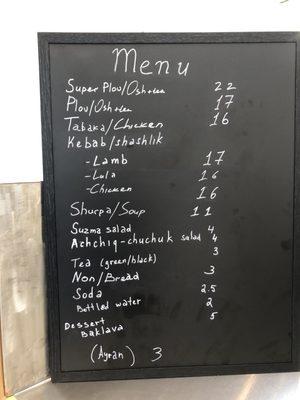 Menu
Super Plov/Oshten 22
Plov/Oshten 17
Tabaka/Chicken 16
Kebab/shashlik
-Lamb 17
-Lula 16
-Chicken 16
Shurpa/Soup 11
Suzma salad 4
Achchiq-chuchuk salad 4
Tea (green/black) 3
Non/Bread 3
Soda 2.5
Bottled water 2
Dessert
Baklava 5
(Ayran) 3